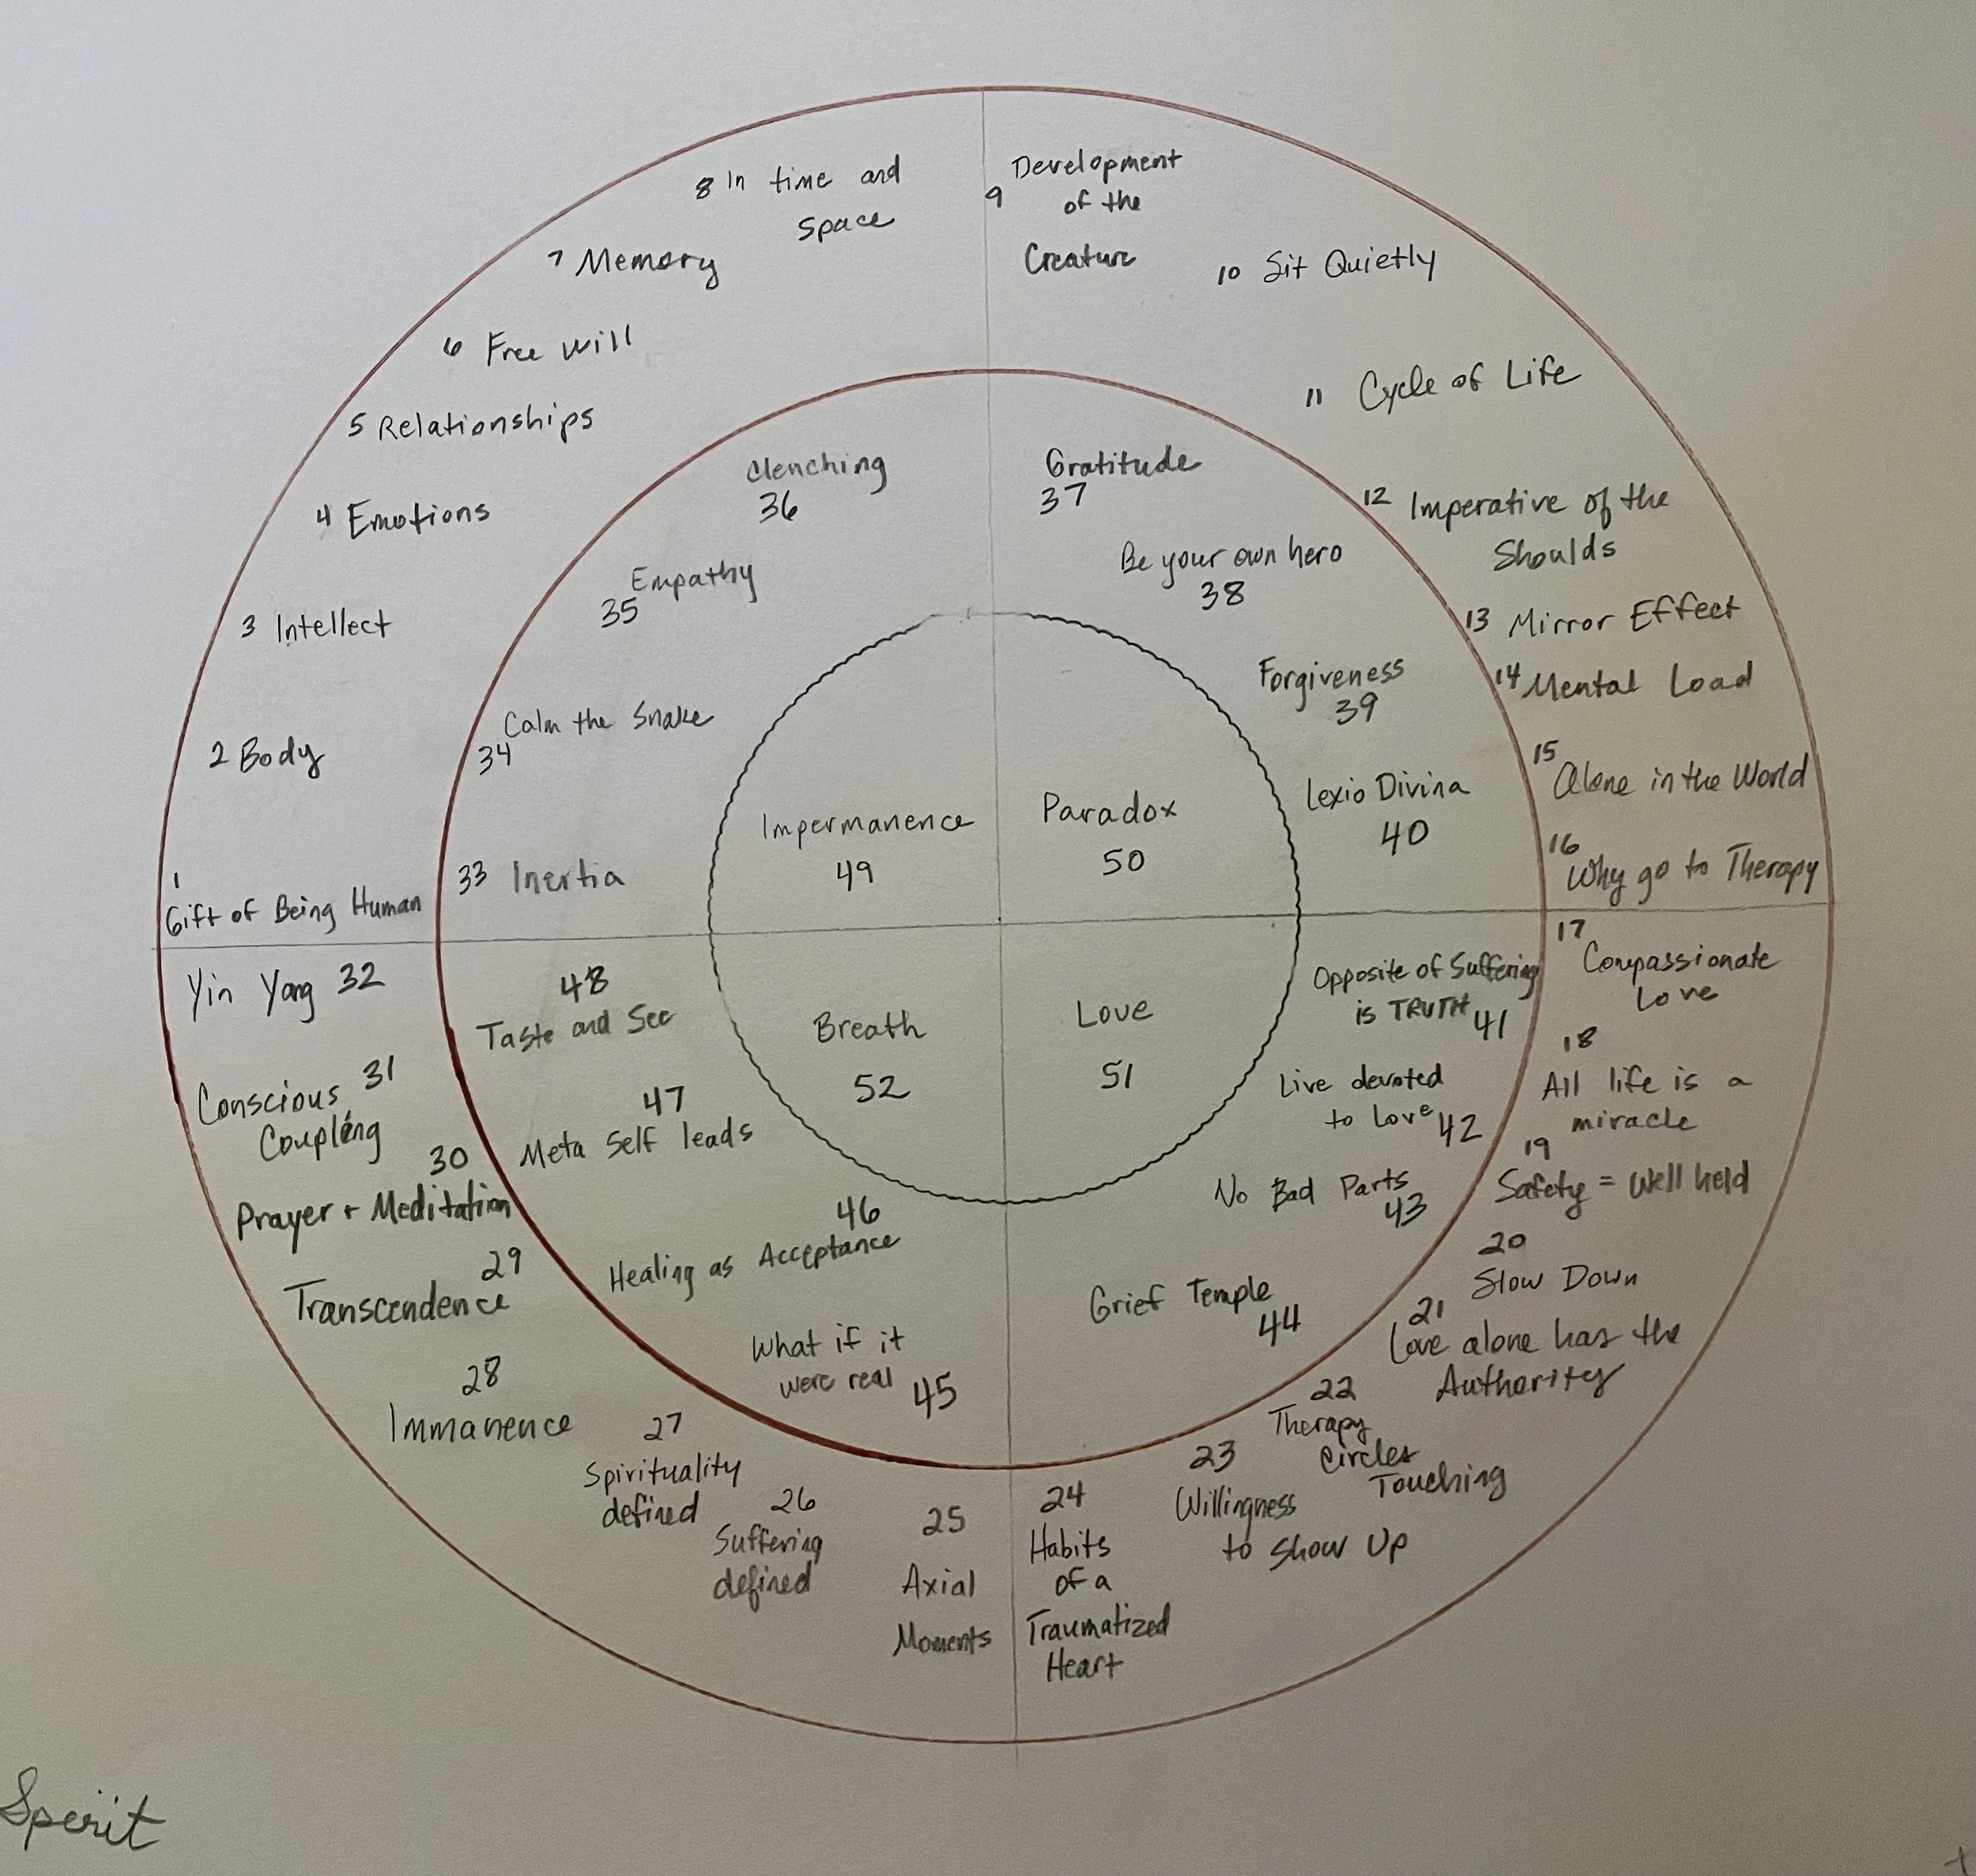 1
Gift of Being Human
2 Body
3 Intellect
4 Emotions
5 Relationships
6 Free Will
7 Memory
8 In time and
space
9
Development
of the
Creature
10 Sit Quietly
11 Cycle of Life
12 Imperative of the
Shoulds
13 Mirror Effect
14 Mental Load
15
Alone in the World
16
Why go to Therapy
17
Compassionate
Love
18
All life is a
miracle
19
Safety = Well held
20
Slow Down
21
Love alone has the
Authority
22
Therapy
Circles
Touching
23
Willingness
to Show Up
24
Habits
of a
Traumatized
Heart
25
Axial
Moments
26
Suffering
defined
27
Spirituality
defined
28
Immanence
29
Transcendence
30
Prayer + Meditation
Conscious 31
Coupling
Yin Yang 32
33 Inertia
Calm the Snake
34
Empathy
35
Clenching
36
Gratitude
37
Be your own hero
38
Forgiveness
39
Lexio Divina
40
Opposite of Suffering
is TRUTH 41
Live devoted
to Love 42
No Bad Parts
43
Grief Temple
44
What if it
were real 45
46
Healing as Acceptance
47
Meta Self leads
48
Taste and See
Impermanence
49
Paradox
50
Love
51
Breath
52